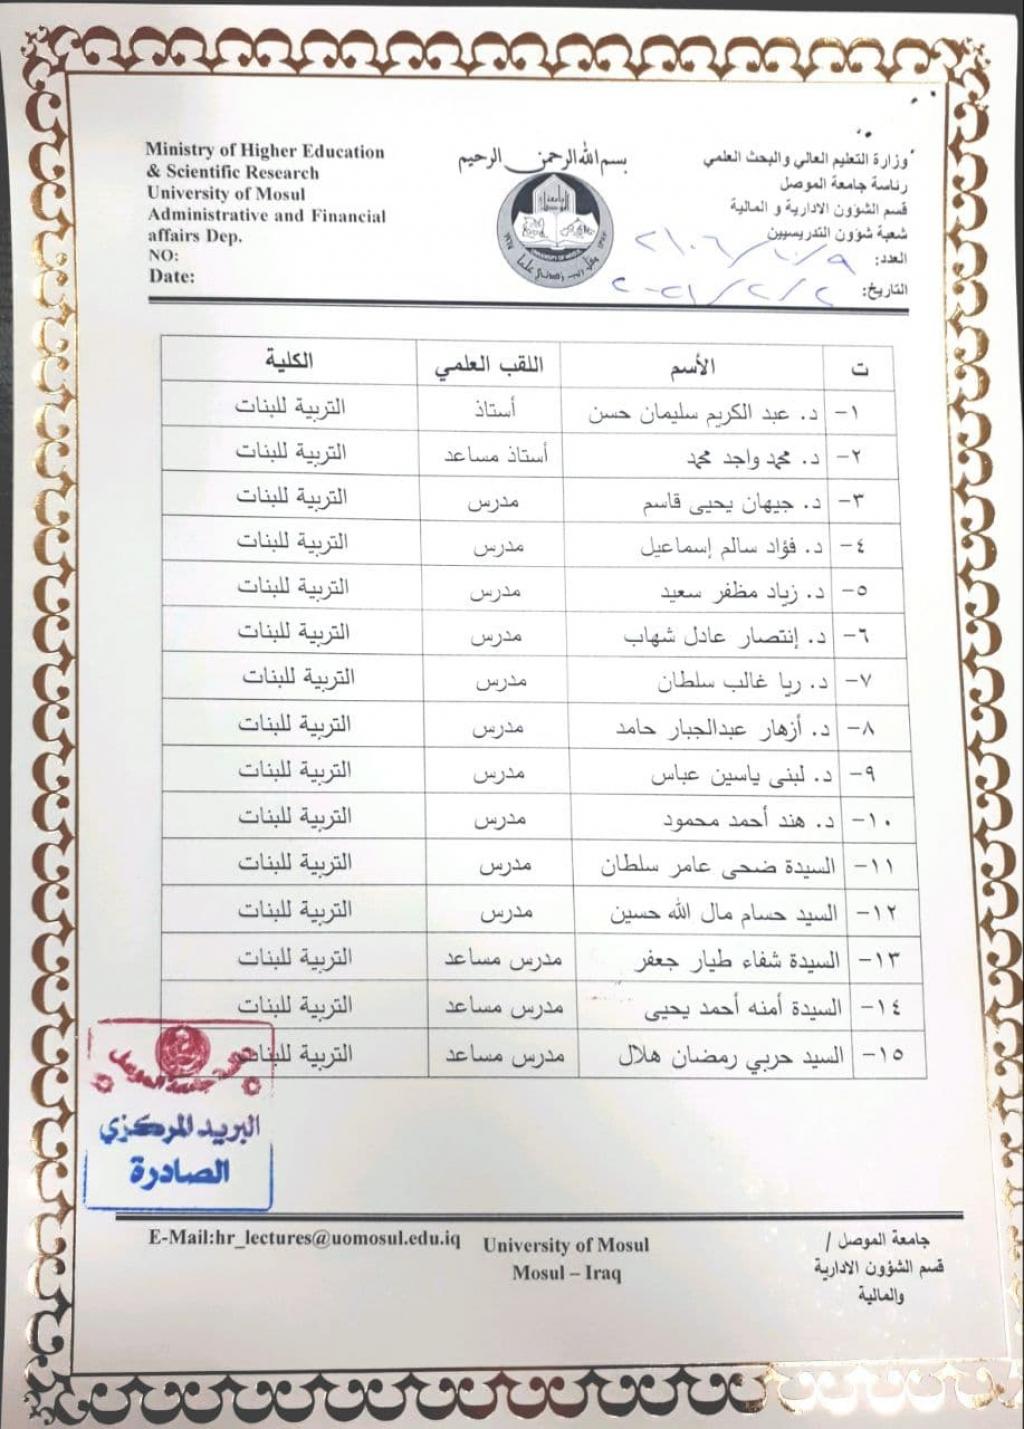 Ministry of Higher Education
& Scientific Research
University of Mosul
Administrative and Financial
affairs Dep.
NO:
Date:
بسم الله الرحمن الرحيم
وزارة التعليم العالي والبحث العلمي
رئاسة جامعة الموصل
قسم الشؤون الادارية و المالية
شعبة شؤون التدريسيين
العدد:
التاريخ: ٢٠٢١/٢/٢
ت الأسم اللقب العلمي الكلية
١- د. عبد الكريم سليمان حسن أستاذ التربية للبنات
٢- د. محمد واجد محمد أستاذ مساعد التربية للبنات
٣- د. جيهان يحيى قاسم مدرس التربية للبنات
٤- د. فؤاد سالم إسماعيل مدرس التربية للبنات
٥- د. زياد مظفر سعيد مدرس التربية للبنات
٦- د. إنتصار عادل شهاب مدرس التربية للبنات
٧- د. ربا غالب سلطان مدرس التربية للبنات
٨- د. أزهار عبدالجبار حامد مدرس التربية للبنات
٩- د. لبنى ياسين عباس مدرس التربية للبنات
١٠- د. هند أحمد محمود مدرس التربية للبنات
١١- السيدة ضحى عامر سلطان مدرس التربية للبنات
١٢- السيد حسام مال الله حسين مدرس التربية للبنات
١٣- السيدة شفاء طيار جعفر مدرس مساعد التربية للبنات
١٤- السيدة أمنه أحمد يحيى مدرس مساعد التربية للبنات
١٥- السيد حربي رمضان هلال مدرس مساعد التربية للبنات
جامعة الموصل
البريد المركزي
الصادرة
E-Mail:hr_lectures@uomosul.edu.iq
University of Mosul
Mosul – Iraq
جامعة الموصل /
قسم الشؤون الادارية
والمالية